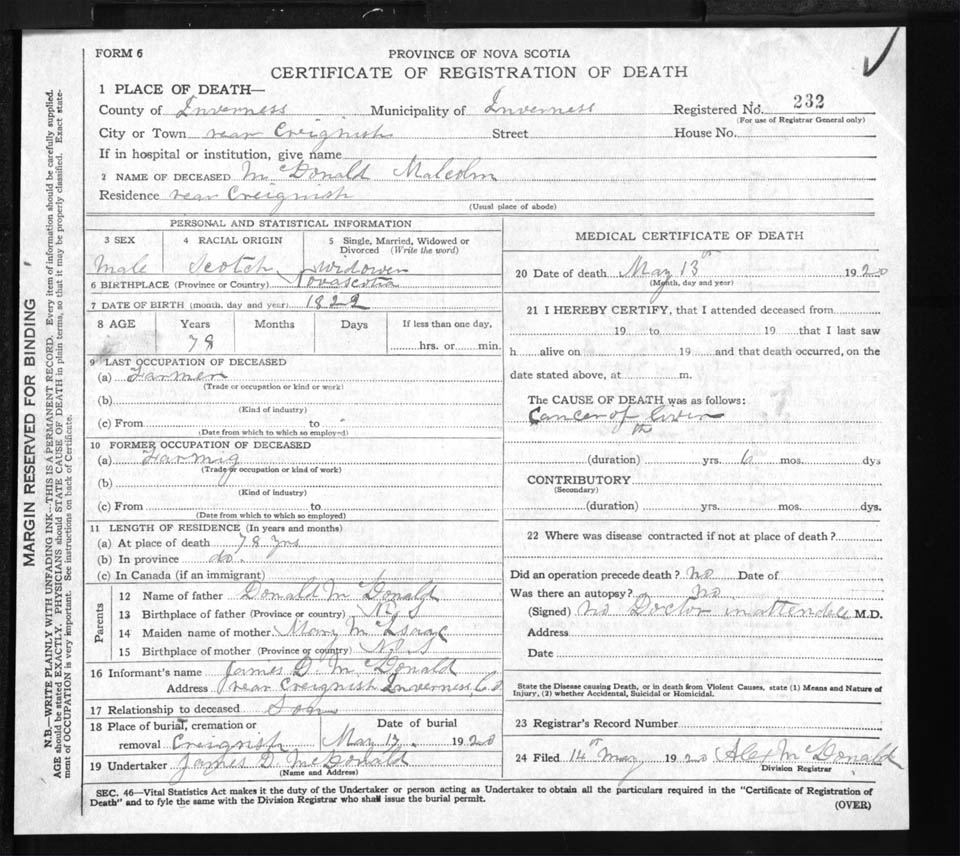 FORM 6
PROVINCE OF NOVA SCOTIA
CERTIFICATE OF REGISTRATION OF DEATH
1 PLACE OF DEATH—
County of Inverness Municipality of Inverness Registered No. 232
(For use of Registrar General only)
City or Town rear Creignish Street House No.
If in hospital or institution, give name
2 NAME OF DECEASED McDonald Malcolm
Residence rear Creignish
(Usual place of abode)
PERSONAL AND STATISTICAL INFORMATION
3 SEX 4 RACIAL ORIGIN 5 Single, Married, Widowed or Divorced (Write the word)
Male Scotch Widower
6 BIRTHPLACE (Province or Country) Novascotia
7 DATE OF BIRTH (month, day and year) 1822
8 AGE Years Months Days If less than one day,
78 hrs. or min.
9 LAST OCCUPATION OF DECEASED
(a) Farmer
(Trade or occupation or kind or work)
(b)
(Kind of industry)
(c) From to
(Date from which to which so employed)
10 FORMER OCCUPATION OF DECEASED
(a) Farmig
(Trade or occupation or kind of work)
(b)
(Kind of industry)
(c) From to
(Date from which to which so employed)
11 LENGTH OF RESIDENCE (In years and months)
(a) At place of death 78 yrs
(b) In province do.
(c) In Canada (if an immigrant)
Parents
12 Name of father Donald McDonald
13 Birthplace of father (Province or country) N. S
14 Maiden name of mother Mary McIsaac
15 Birthplace of mother (Province or country) N. S
16 Informant's name James D. McDonald
Address rear Creignish Inverness Co
17 Relationship to deceased Son
18 Place of burial, cremation or Date of burial
removal Creignish May 17 1920
19 Undertaker James D. McDonald
(Name and Address)
MEDICAL CERTIFICATE OF DEATH
20 Date of death May 13th 1920
(Month, day and year)
21 I HEREBY CERTIFY, that I attended deceased from
19 to 19 that I last saw
h alive on 19 and that death occurred, on the
date stated above, at m.
The CAUSE OF DEATH was as follows:
Cancer of liver
th
(duration) yrs. 6 mos. dys
CONTRIBUTORY
(Secondary)
(duration) yrs. mos. dys.
22 Where was disease contracted if not at place of death?
Did an operation precede death? no Date of
Was there an autopsy? no
(Signed) no Doctor in attendace M.D.
Address
Date
State the Disease causing Death, or in death from Violent Causes, state (1) Means and Nature of
Injury, (2) whether Accidental, Suicidal or Homicidal.
23 Registrar's Record Number
24 Filed 14th May 1920 Alex McDonald
Division Registrar
SEC. 46—Vital Statistics Act makes it the duty of the Undertaker or person acting as Undertaker to obtain all the particulars required in the "Certificate of Registration of
Death" and to fyle the same with the Division Registrar who shall issue the burial permit.
(OVER)
MARGIN RESERVED FOR BINDING
N.B.—WRITE PLAINLY WITH UNFADING INK—THIS IS A PERMANENT RECORD. Every item of information should be carefully supplied.
AGE should be stated EXACTLY. PHYSICIANS should STATE CAUSE OF DEATH in plain terms, so that it may be properly classified. Exact state-
ment of OCCUPATION is very important. See instructions on back of Certificate.